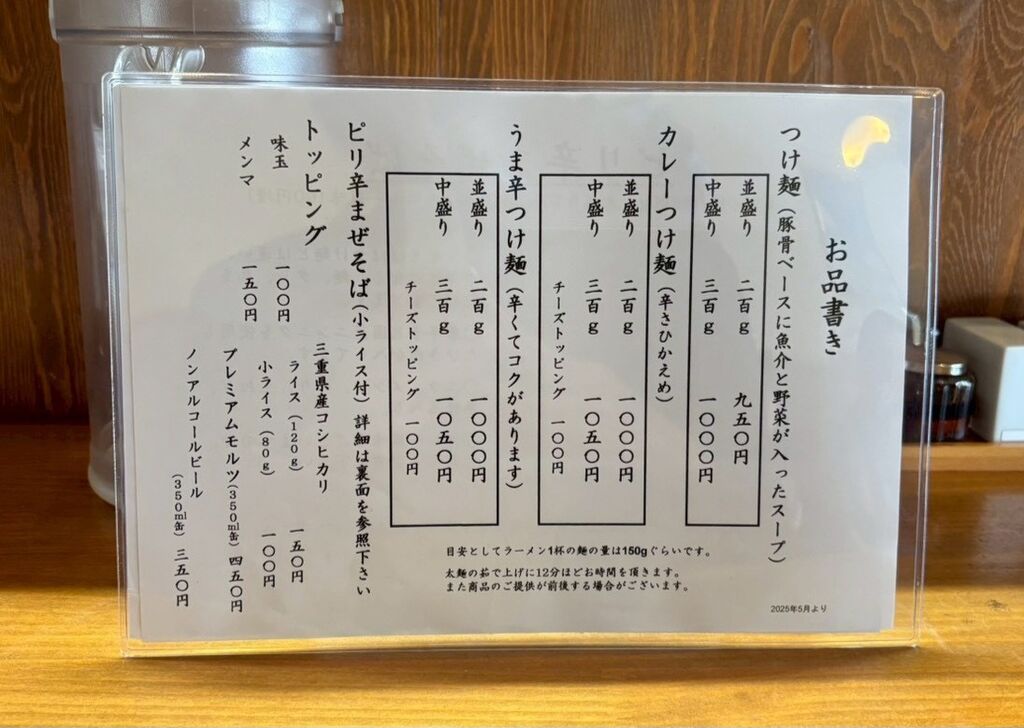 お品書き
つけ麺（豚骨ベースに魚介と野菜が入ったスープ）
並盛り 二百g 九五〇円
中盛り 三百g 一〇〇〇円
カレーつけ麺（辛さひかえめ）
並盛り 二百g 一〇〇〇円
中盛り 三百g 一〇五〇円
チーズトッピング 一〇〇円
うま辛つけ麺（辛くてコクがあります）
並盛り 二百g 一〇〇〇円
中盛り 三百g 一〇五〇円
チーズトッピング 一〇〇円
ピリ辛まぜそば（小ライス付）詳細は裏面を参照下さい
トッピング
味玉 一〇〇円
メンマ 一五〇円
三重県産コシヒカリ
ライス（120g） 一五〇円
小ライス（80g） 一〇〇円
プレミアムモルツ（350ml缶）四五〇円
ノンアルコールビール（350ml缶）三五〇円
目安としてラーメン1杯の麺の量は150gぐらいです。
太麺の茹で上げに12分ほどお時間を頂きます。
また商品のご提供が前後する場合がございます。
2025年5月より